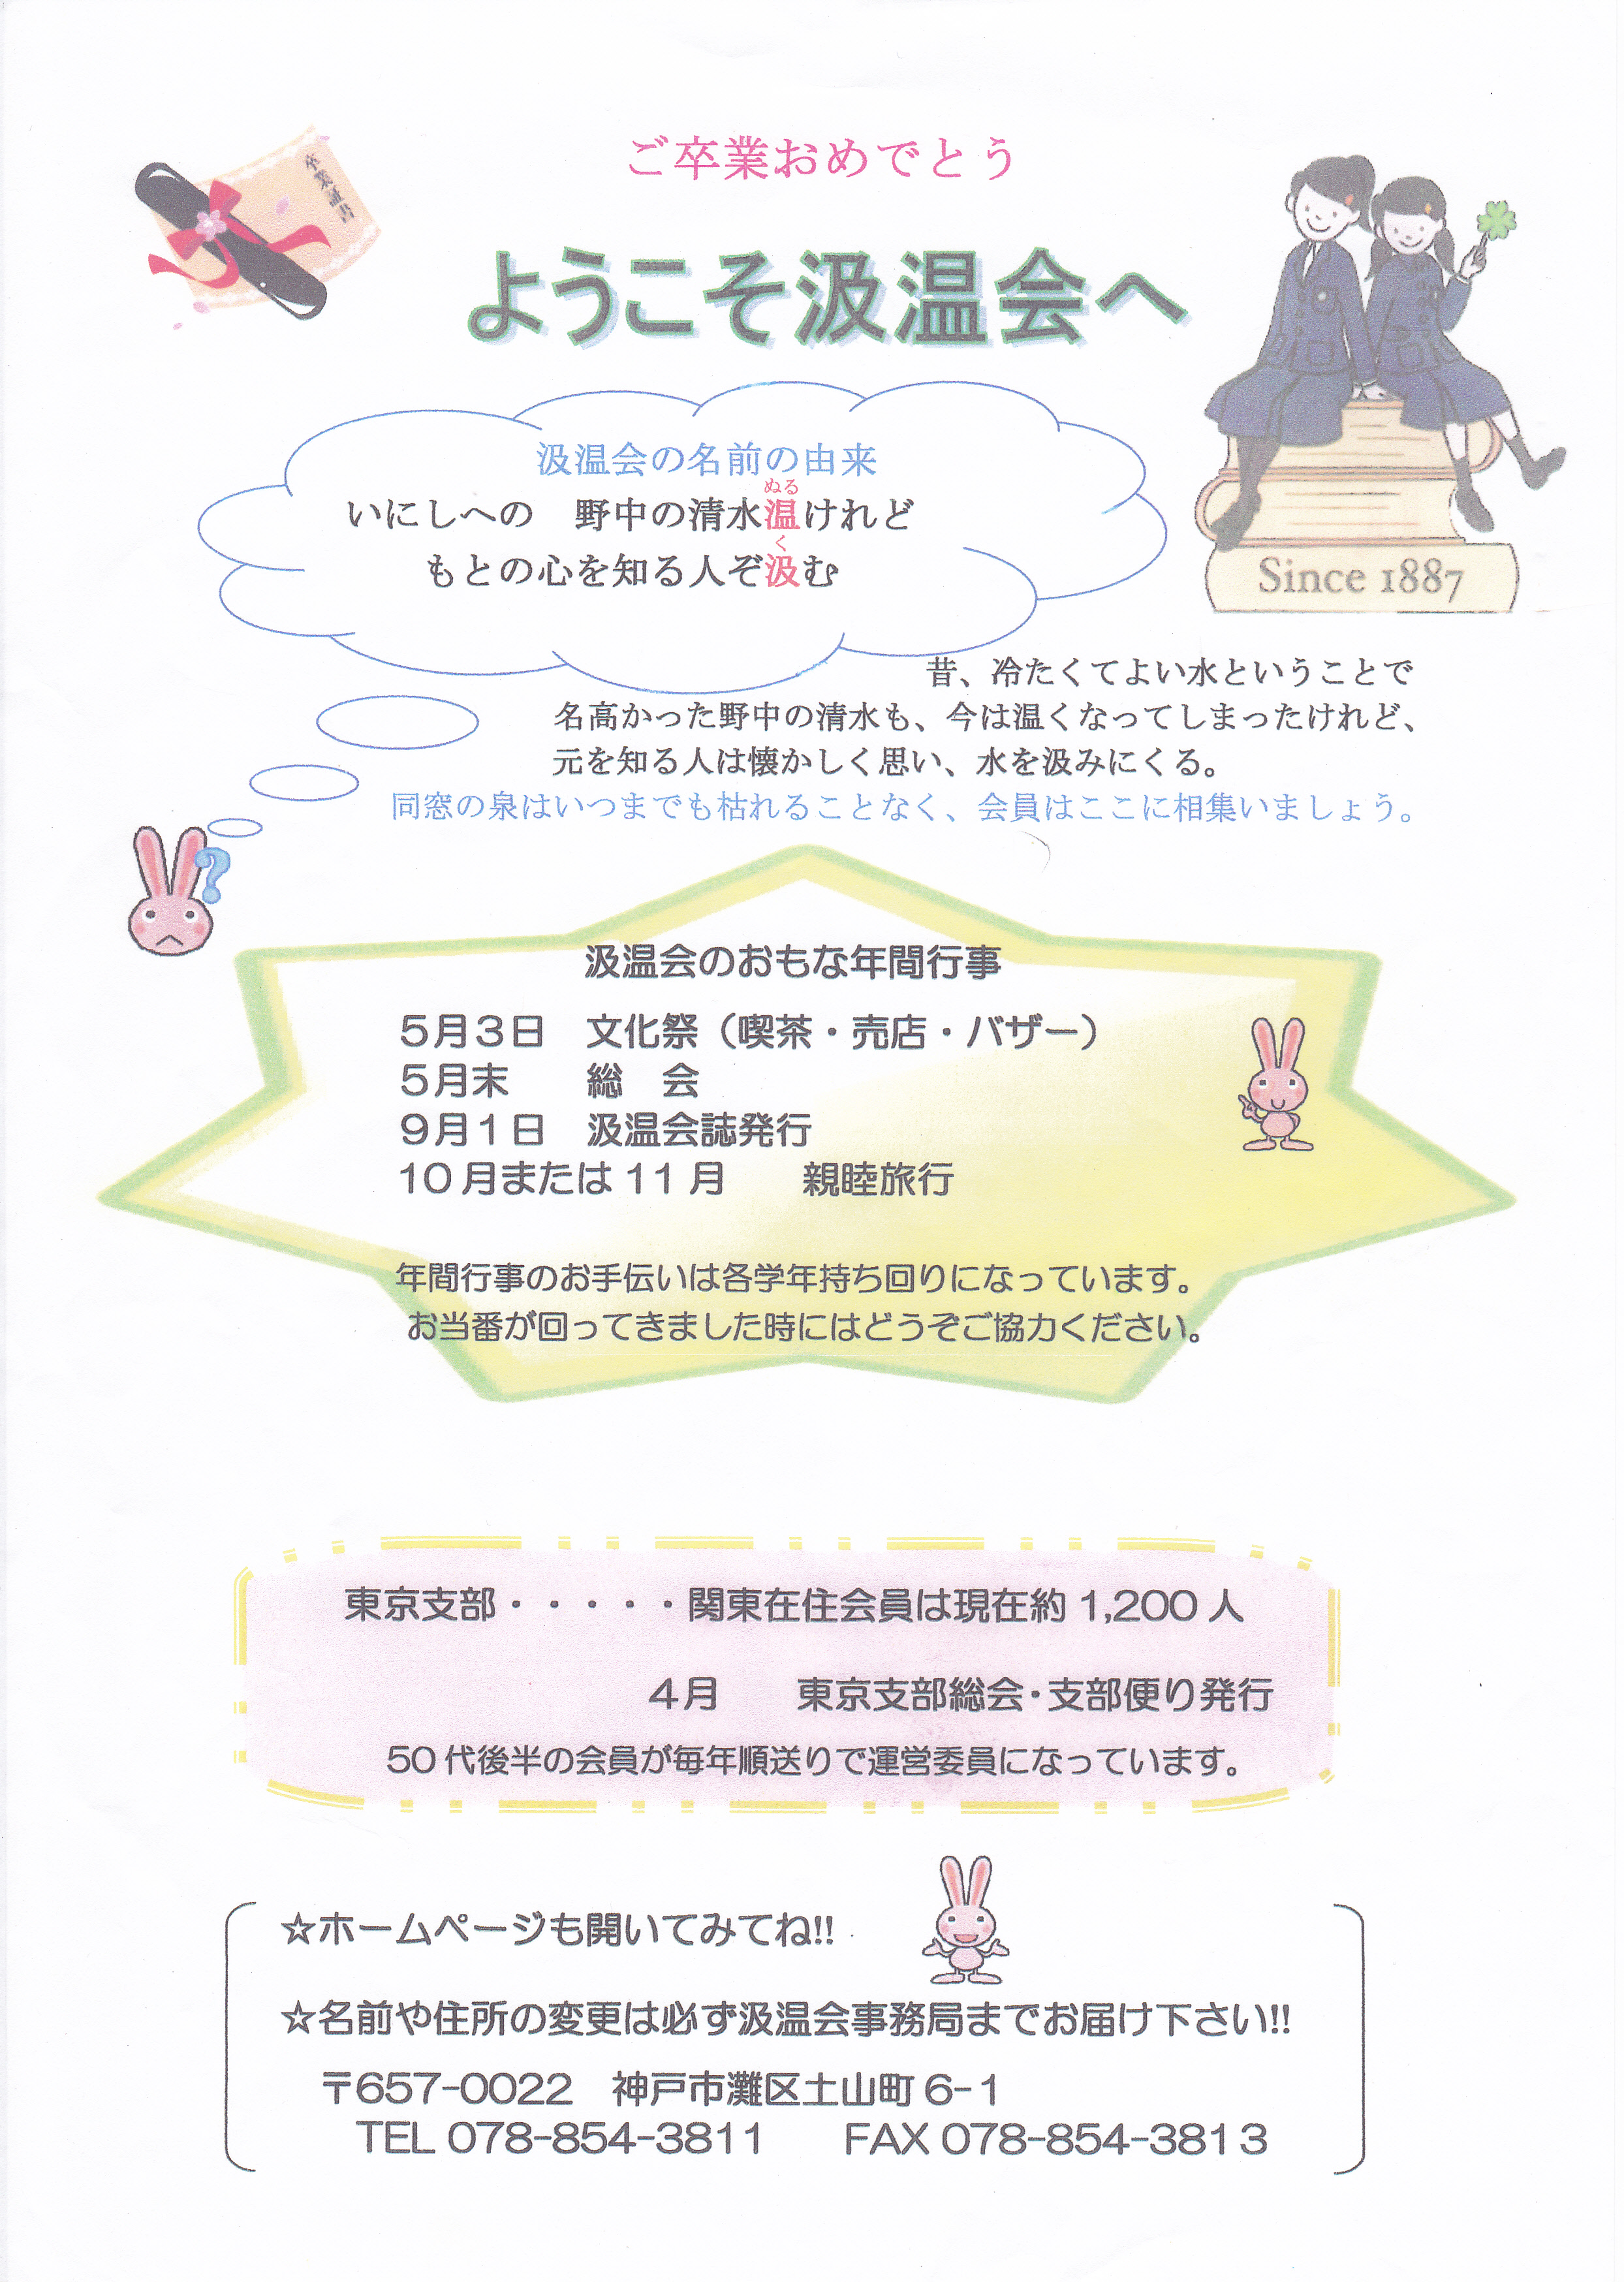 ご卒業おめでとう
卒業証書
ようこそ汲温会へ
汲温会の名前の由来
ぬる
いにしへの　野中の清水温けれど
く
もとの心を知る人ぞ汲む
Since 1887
昔、冷たくてよい水ということで
名高かった野中の清水も、今は温くなってしまったけれど、
元を知る人は懐かしく思い、水を汲みにくる。
同窓の泉はいつまでも枯れることなく、会員はここに相集いましょう。
?
汲温会のおもな年間行事
５月３日　文化祭（喫茶・売店・バザー）
５月末　　総　会
９月１日　汲温会誌発行
10月または11月　　親睦旅行
年間行事のお手伝いは各学年持ち回りになっています。
お当番が回ってきました時にはどうぞご協力ください。
東京支部・・・・・関東在住会員は現在約1,200人
４月　　東京支部総会・支部便り発行
50代後半の会員が毎年順送りで運営委員になっています。
☆ホームページも開いてみてね!!
☆名前や住所の変更は必ず汲温会事務局までお届け下さい!!
〒657-0022　神戸市灘区土山町6-1
TEL 078-854-3811　　FAX 078-854-3813